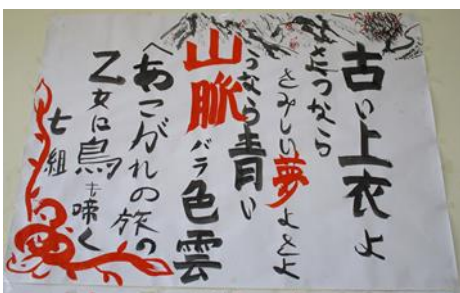 古い上衣よ
さよつなら
さみしい夢よさよ
うなら青い
山脈バラ色雲
へあこがれの旅の
乙女に鳥も啼く
七組